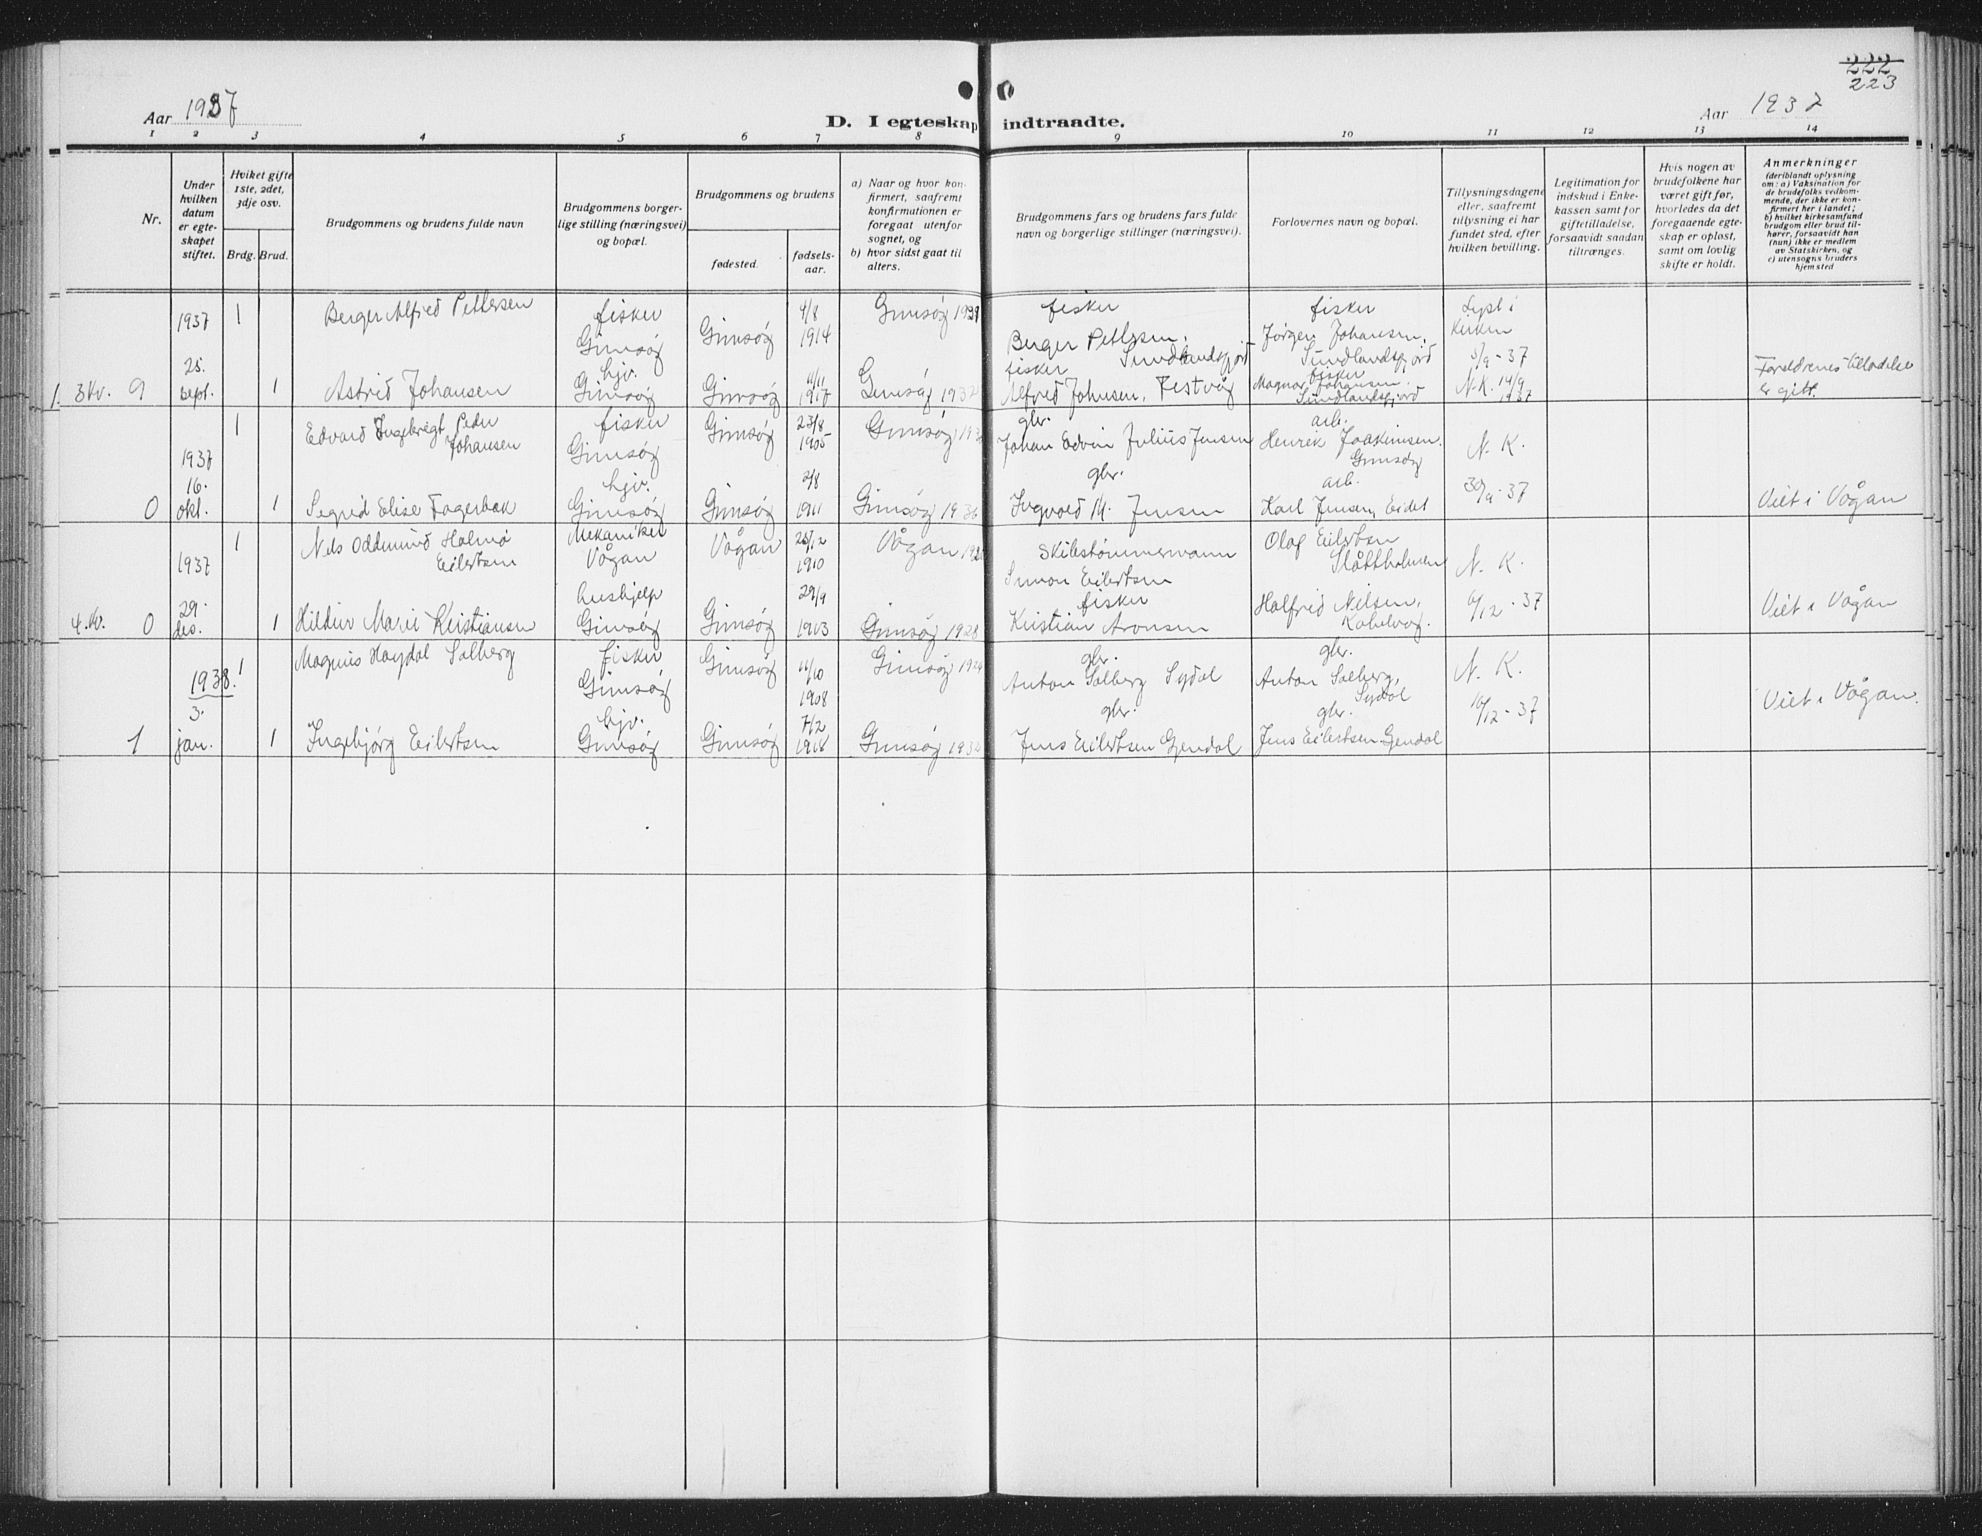 222
223
Aar 1937
D. I egteskap indtraadte.
Aar 1937
1 2 3 4 5 6 7 8 9 10 11 12 13 14
Nr.
Under hvilken datum er egteskapet stiftet.
Hviket gifte 1ste, 2det, 3dje osv.
Brdg. Brud.
Brudgommens og brudens fulde navn
Brudgommens borgerlige stilling (næringsvei) og bopæl.
Brudgommens og brudens
fødested.
fødselsaar.
a) Naar og hvor konfirmert, saafremt konfirmationen er foregaat utenfor sognet, og
b) hvor sidst gaat til alters.
Brudgommens fars og brudens fars fulde navn og borgerlige stillinger (næringsvei).
Forlovernes navn og bopæl.
Tillysningsdagene eller, saafremt tillysning ei har fundet sted, efter hvilken bevilling.
Legitimation for indskud i Enkekassen samt for giftetilladelse, forsaavidt saadan tiltrænges.
Hvis nogen av brudefolkene har været gift før, hvorledes da det foregaaende egteskap er opløst, samt om lovlig skifte er holdt.
Anmerkninger
(deriblandt oplysning om: a) Vaksination for de brudefolks vedkommende, der ikke er konfirmert her i landet;
b) hvilket kirkesamfund brudgom eller brud tilhører, forsaavidt han (hun) ikke er medlem av Statskirken, og
c) utensogns bruders hjemsted
1937 1 Berger Alfred Pettersen fisker Gimsøy Gimsøy 4/8 1914 Gimsøy fisker Berger Pettersen, Sundklandsfjord fisker Jørgen Johansen, Sundlandsfjord Lyst i kirken 5/9-37
1. 3 kv. 9 25. sept. 1 Astrid Johansen hjv. Gimsøy Gimsøy 11/11 1917 Gimsøy 1932 fisker Alfred Johnsen, Festvåg fisker Magnar Johansen, Sundlandsfjord N.K. 14/9 1937 Foreldrenes tilladelse er gitt.
1937 1 Edvard Ingebrigt Peder Johansen fisker Gimsøy Gimsøy 23/8 1905 Gimsøy gbr. Johan Edvin Julius Jensen arb. Henrik Joakimsen Gimsøy N. K.
0 16. okt. 1 Sigrid Elise Fagerbak hjv. Gimsøy Gimsøy 2/8 1911 Gimsøy 1936 gbr. Ingvald M. Jensen arb. Karl Jensen, Eidet 30/9-37 Viet i Vågan
1937 1 Nils Oddmund Holmø Eilertsen Mekaniker Vågan Vågan 23/12 1910 Vågan Skibstømmermann Simon Eilertsen Olaf Eilertsen Slåttholmen N. K.
4. kv. 0 29. des. 1 Hildur Marie Kristiansen hushjelp Gimsøy Gimsøy 29/9 1913 Gimsøy 1928 fisker Kristian Aronsen Halfrid Nilsen, Kabelvåg. 6/12-37 Viet i Vågan
1938. 1 Magnus Høydal Solberg fisker Gimsøy Gimsøy 11/10 1908 Gimsøy 1924 gbr. Anton Solberg Sydal gbr. Anton Solberg, Sydal N. K.
1 3. jan. 1 Ingebjørg Eilertsen hjv. Gimsøy Gimsøy 7/2 1918 Gimsøy gbr. Jens Eilertsen Gjerdal gbr. Jens Eilertsen Gjerdal 16/12-37 Viet i Vågan.